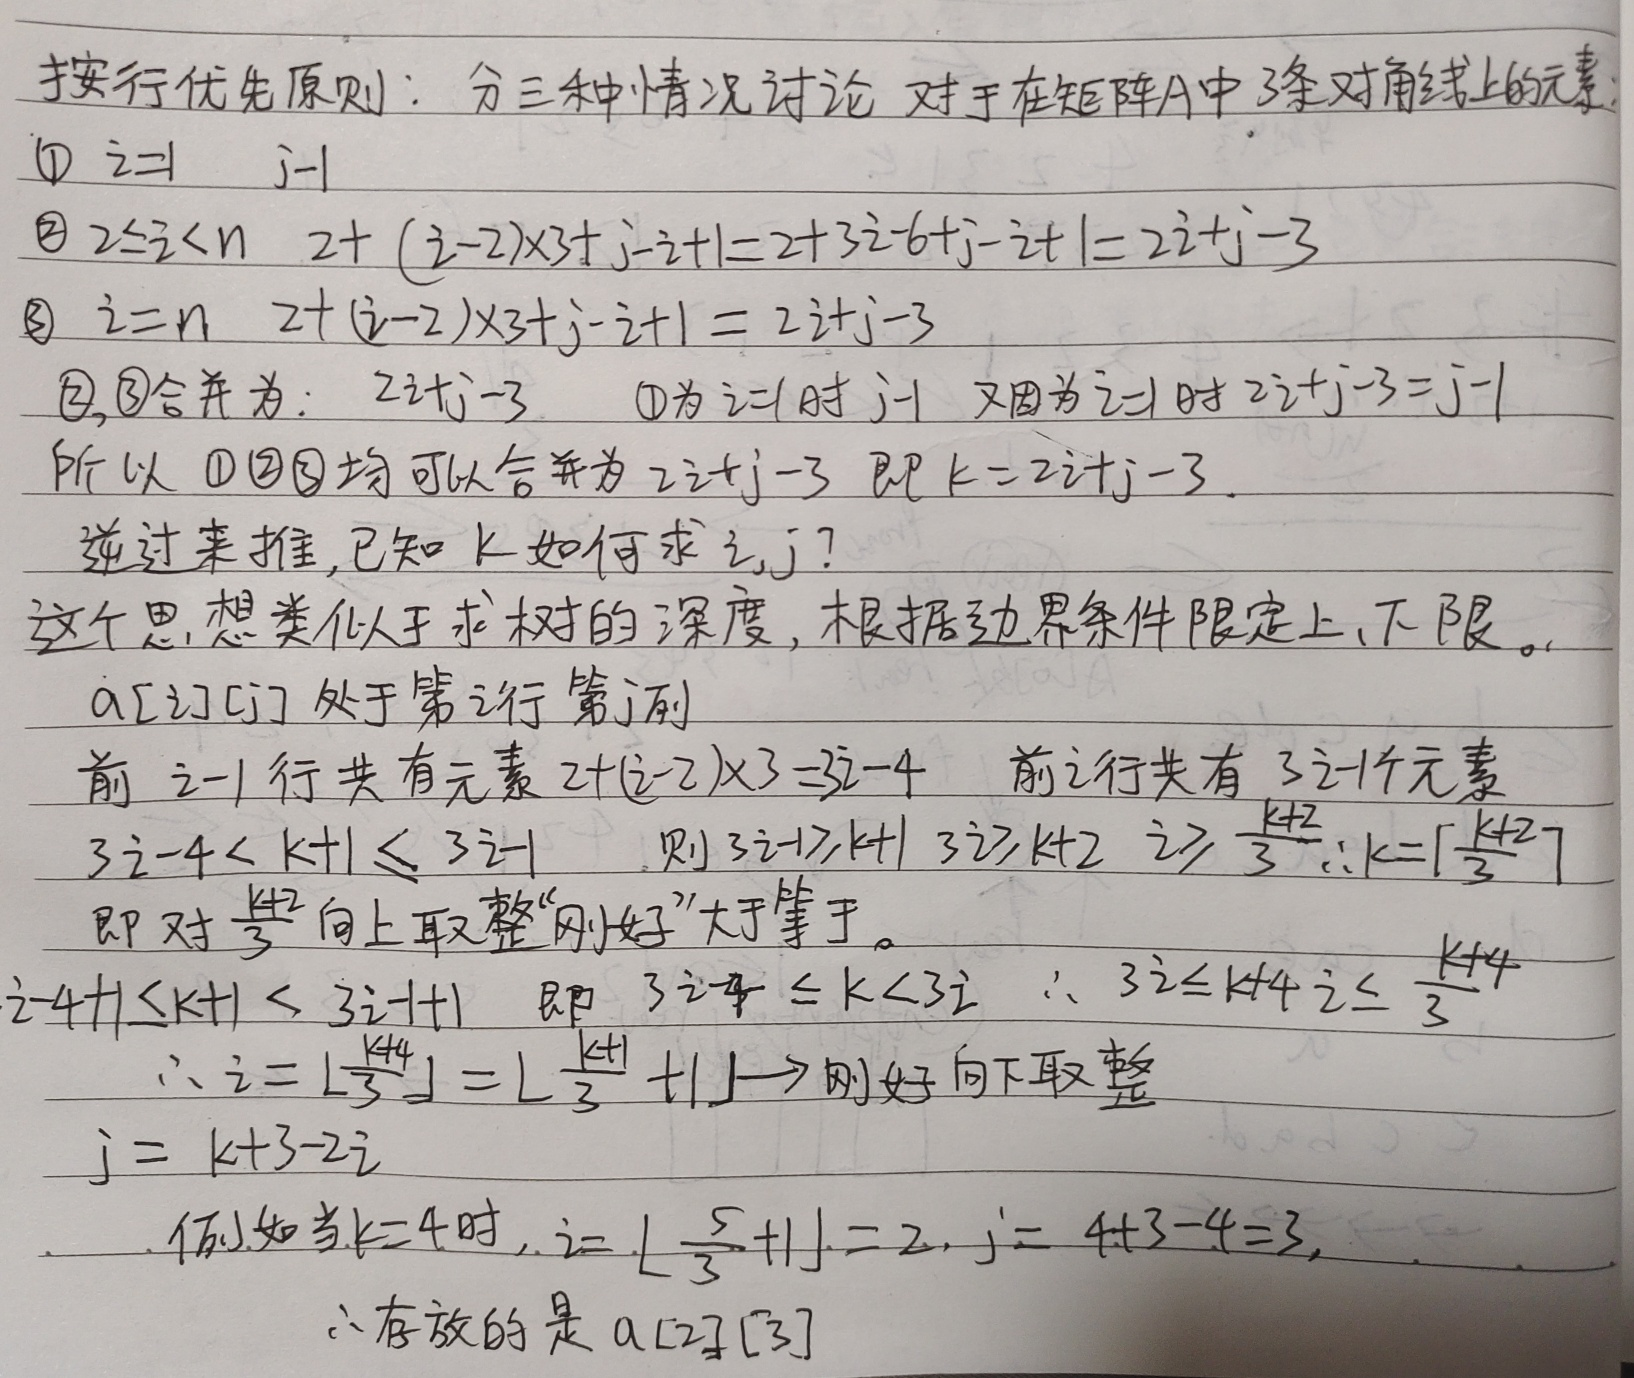 按行优先原则: 分三种情况讨论 对于在矩阵A中3条对角线上的元素:
① i=1 j-1
② 2≤i<n 2+(i-2)×3+j-i+1=2+3i-6+j-i+1=2i+j-3
③ i=n 2+(i-2)×3+j-i+1=2i+j-3
②,③合并为: 2i+j-3 ①为i=1时j-1 又因为i=1时2i+j-3=j-1
所以①②③均可以合并为2i+j-3 即k=2i+j-3.
逆过来推,已知k如何求i,j?
这个思想类似于求树的深度,根据边界条件限定上、下限。
a[i][j]处于第i行第j列
前i-1行共有元素2+(i-2)×3=3i-4 前i行共有3i-1个元素
3i-4<k+1≤3i-1 则3i-1≥k+1 3i≥k+2 i≥\frac{k+2}{3} ∴k=⌈\frac{k+2}{3}⌉
即对\frac{k+2}{3}向上取整“刚好”大于等于。
i-4+1≤k+1<3i-1+1 即 3i-4≤k<3i ∴ 3i≤k+4 i≤\frac{k+4}{3}
∴i=⌊\frac{k+4}{3}⌋=⌊\frac{k+1}{3}+1⌋→刚好向下取整
j=k+3-2i
例如当k=4时, i=⌊\frac{5}{3}+1⌋=2, j=4+3-4=3,
∴存放的是a[2][3]